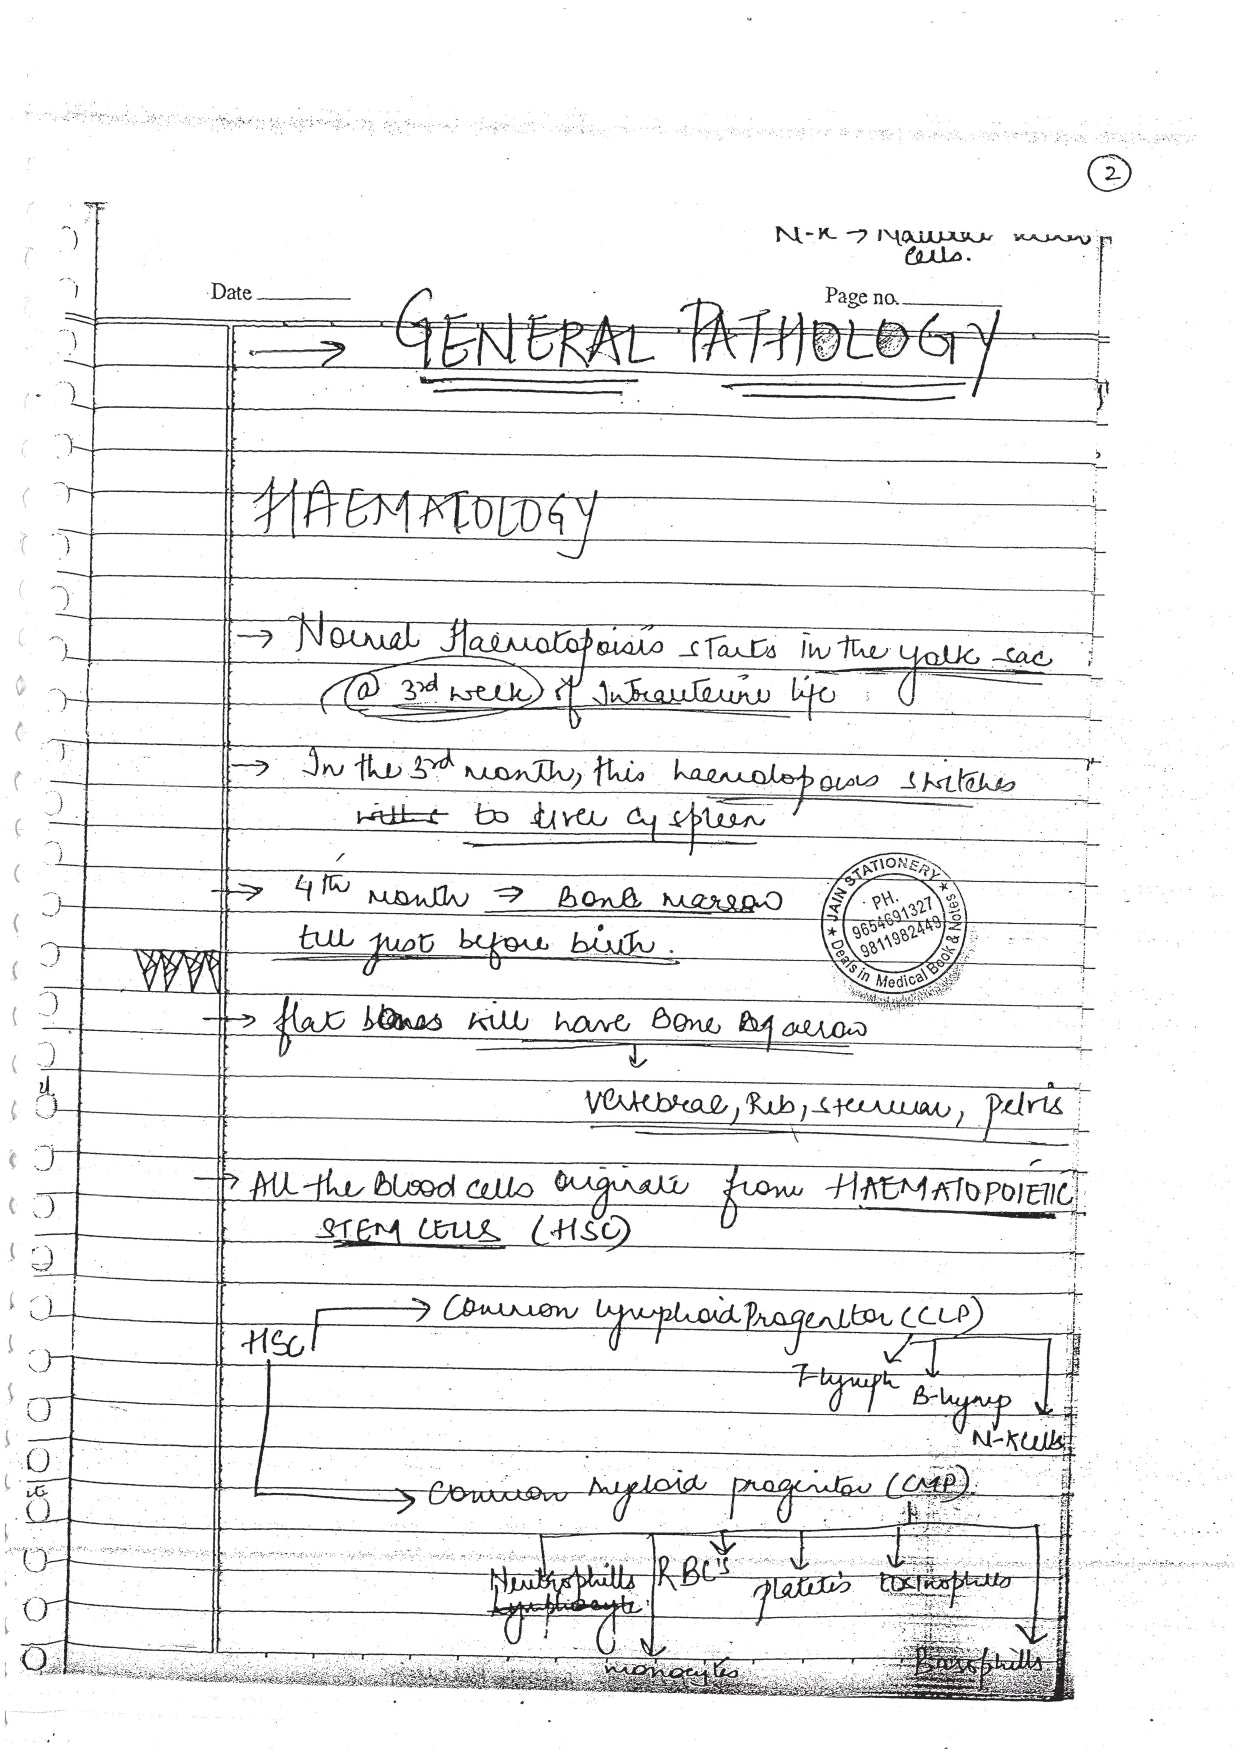 2
N-K → Natural killer
cells.
Date
Page no.
→ GENERAL PATHOLOGY
HAEMATOLOGY
→ Normal Haematopoisis starts in the yolk sac
@ 3rd week of Intrauterine life
→ In the 3rd month, this haematopoisis switches
to liver & spleen
→ 4th month → Bone marrow
till just before birth.
JAIN STATIONERY
PH.
9654691327
9811982449
Deals in Medical Book & Notes
→ flat bones will have Bone Marrow
↓
Vertebrae, Rib, sternum, pelvis
→ All the Blood cells originate from HAEMATOPOIETIC
STEM CELLS (HSC)
HSC → Common lymphoid Progenitor (CLP)
T-lymph B-lymp
N-K cells
→ Common myeloid progenitor (CMP).
Neutrophills RBC's Platetes Eosinophills
Lymphocyte
monocytes Basophills